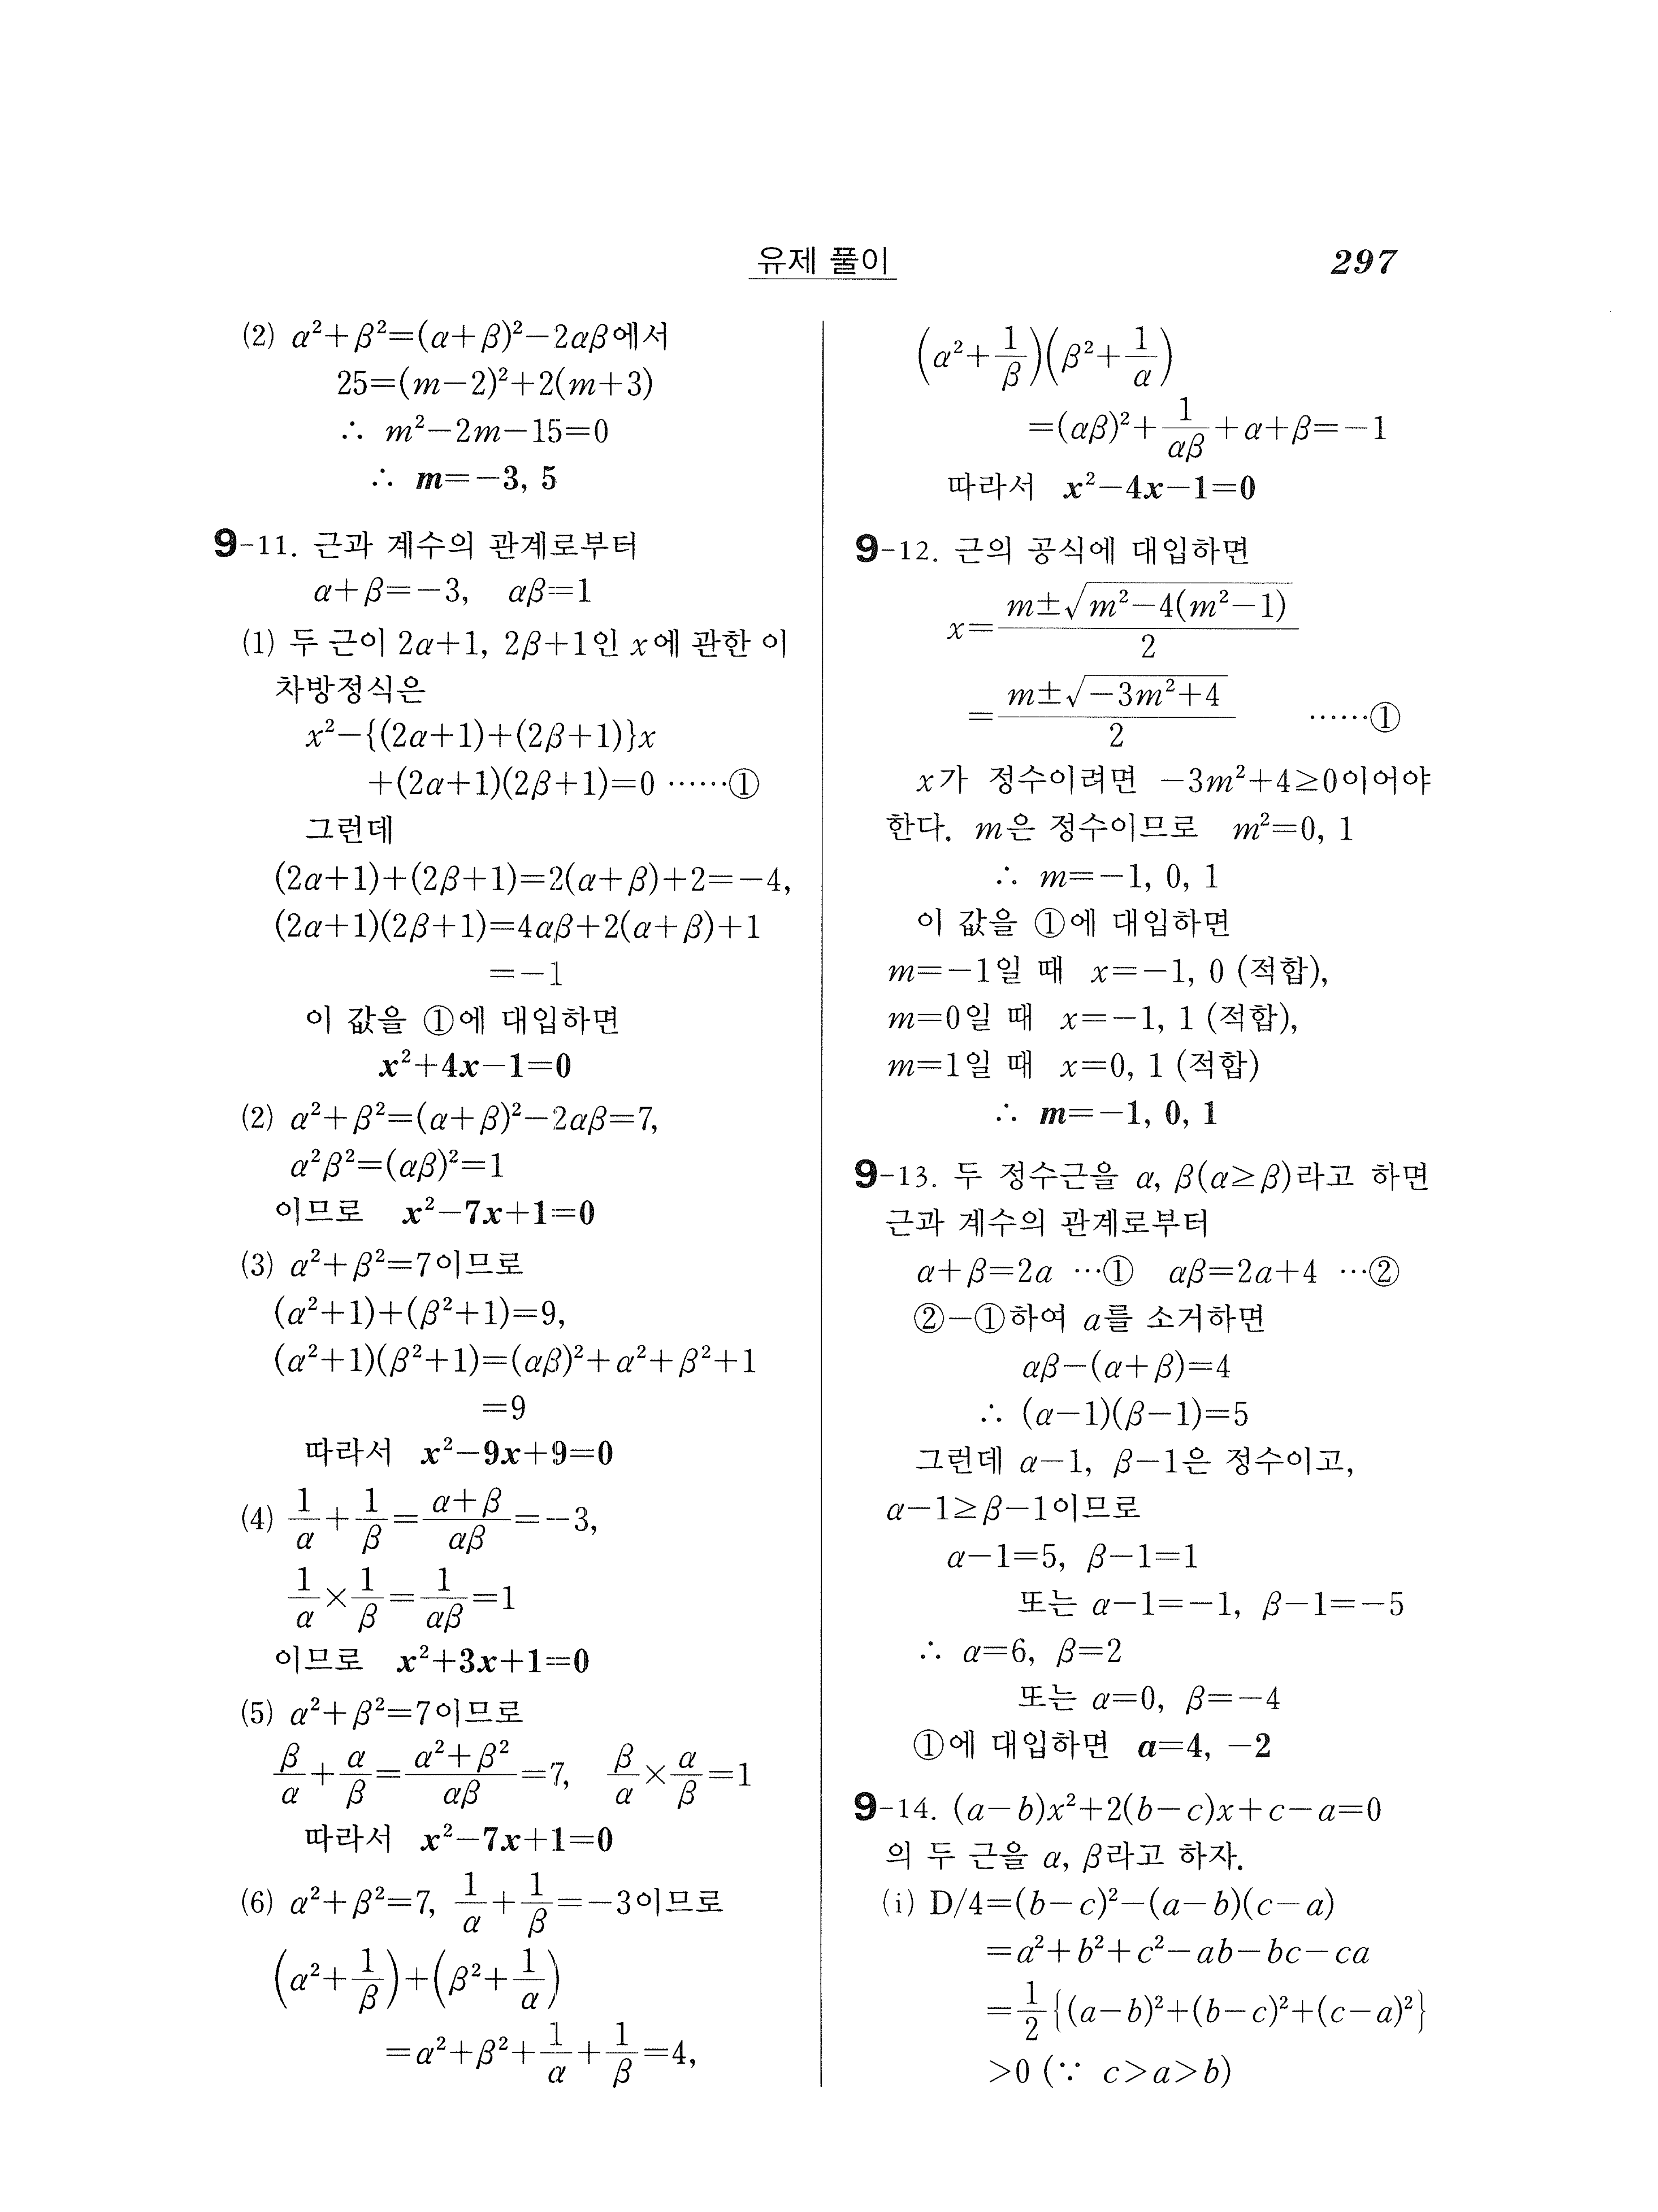 유제 풀이
297
(2) α²+β²=(α+β)²−2αβ에서
25=(m−2)²+2(m+3)
∴ m²−2m−15=0
∴ m=−3, 5
9-11. 근과 계수의 관계로부터
α+β=−3, αβ=1
(1) 두 근이 2α+1, 2β+1인 x에 관한 이
차방정식은
x²−{(2α+1)+(2β+1)}x
+(2α+1)(2β+1)=0 ……①
그런데
(2α+1)+(2β+1)=2(α+β)+2=−4,
(2α+1)(2β+1)=4αβ+2(α+β)+1
=−1
이 값을 ①에 대입하면
x²+4x−1=0
(2) α²+β²=(α+β)²−2αβ=7,
α²β²=(αβ)²=1
이므로 x²−7x+1=0
(3) α²+β²=7이므로
(α²+1)+(β²+1)=9,
(α²+1)(β²+1)=(αβ)²+α²+β²+1
=9
따라서 x²−9x+9=0
(4) 1/α+1/β=(α+β)/αβ=−3,
1/α×1/β=1/αβ=1
이므로 x²+3x+1=0
(5) α²+β²=7이므로
β/α+α/β=(α²+β²)/αβ=7, β/α×α/β=1
따라서 x²−7x+1=0
(6) α²+β²=7, 1/α+1/β=−3이므로
(α²+1/β)+(β²+1/α)
=α²+β²+1/α+1/β=4,
(α²+1/β)(β²+1/α)
=(αβ)²+1/αβ+α+β=−1
따라서 x²−4x−1=0
9-12. 근의 공식에 대입하면
x=(m±√(m²−4(m²−1)))/2
=(m±√(−3m²+4))/2 ……①
x가 정수이려면 −3m²+4≥0이어야
한다. m은 정수이므로 m²=0, 1
∴ m=−1, 0, 1
이 값을 ①에 대입하면
m=−1일 때 x=−1, 0 (적합),
m=0일 때 x=−1, 1 (적합),
m=1일 때 x=0, 1 (적합)
∴ m=−1, 0, 1
9-13. 두 정수근을 α, β(α≥β)라고 하면
근과 계수의 관계로부터
α+β=2a …① αβ=2a+4 …②
②−①하여 a를 소거하면
αβ−(α+β)=4
∴ (α−1)(β−1)=5
그런데 α−1, β−1은 정수이고,
α−1≥β−1이므로
α−1=5, β−1=1
또는 α−1=−1, β−1=−5
∴ α=6, β=2
또는 α=0, β=−4
①에 대입하면 a=4, −2
9-14. (a−b)x²+2(b−c)x+c−a=0
의 두 근을 α, β라고 하자.
(i) D/4=(b−c)²−(a−b)(c−a)
=a²+b²+c²−ab−bc−ca
=1/2{(a−b)²+(b−c)²+(c−a)²}
>0 (∵ c>a>b)